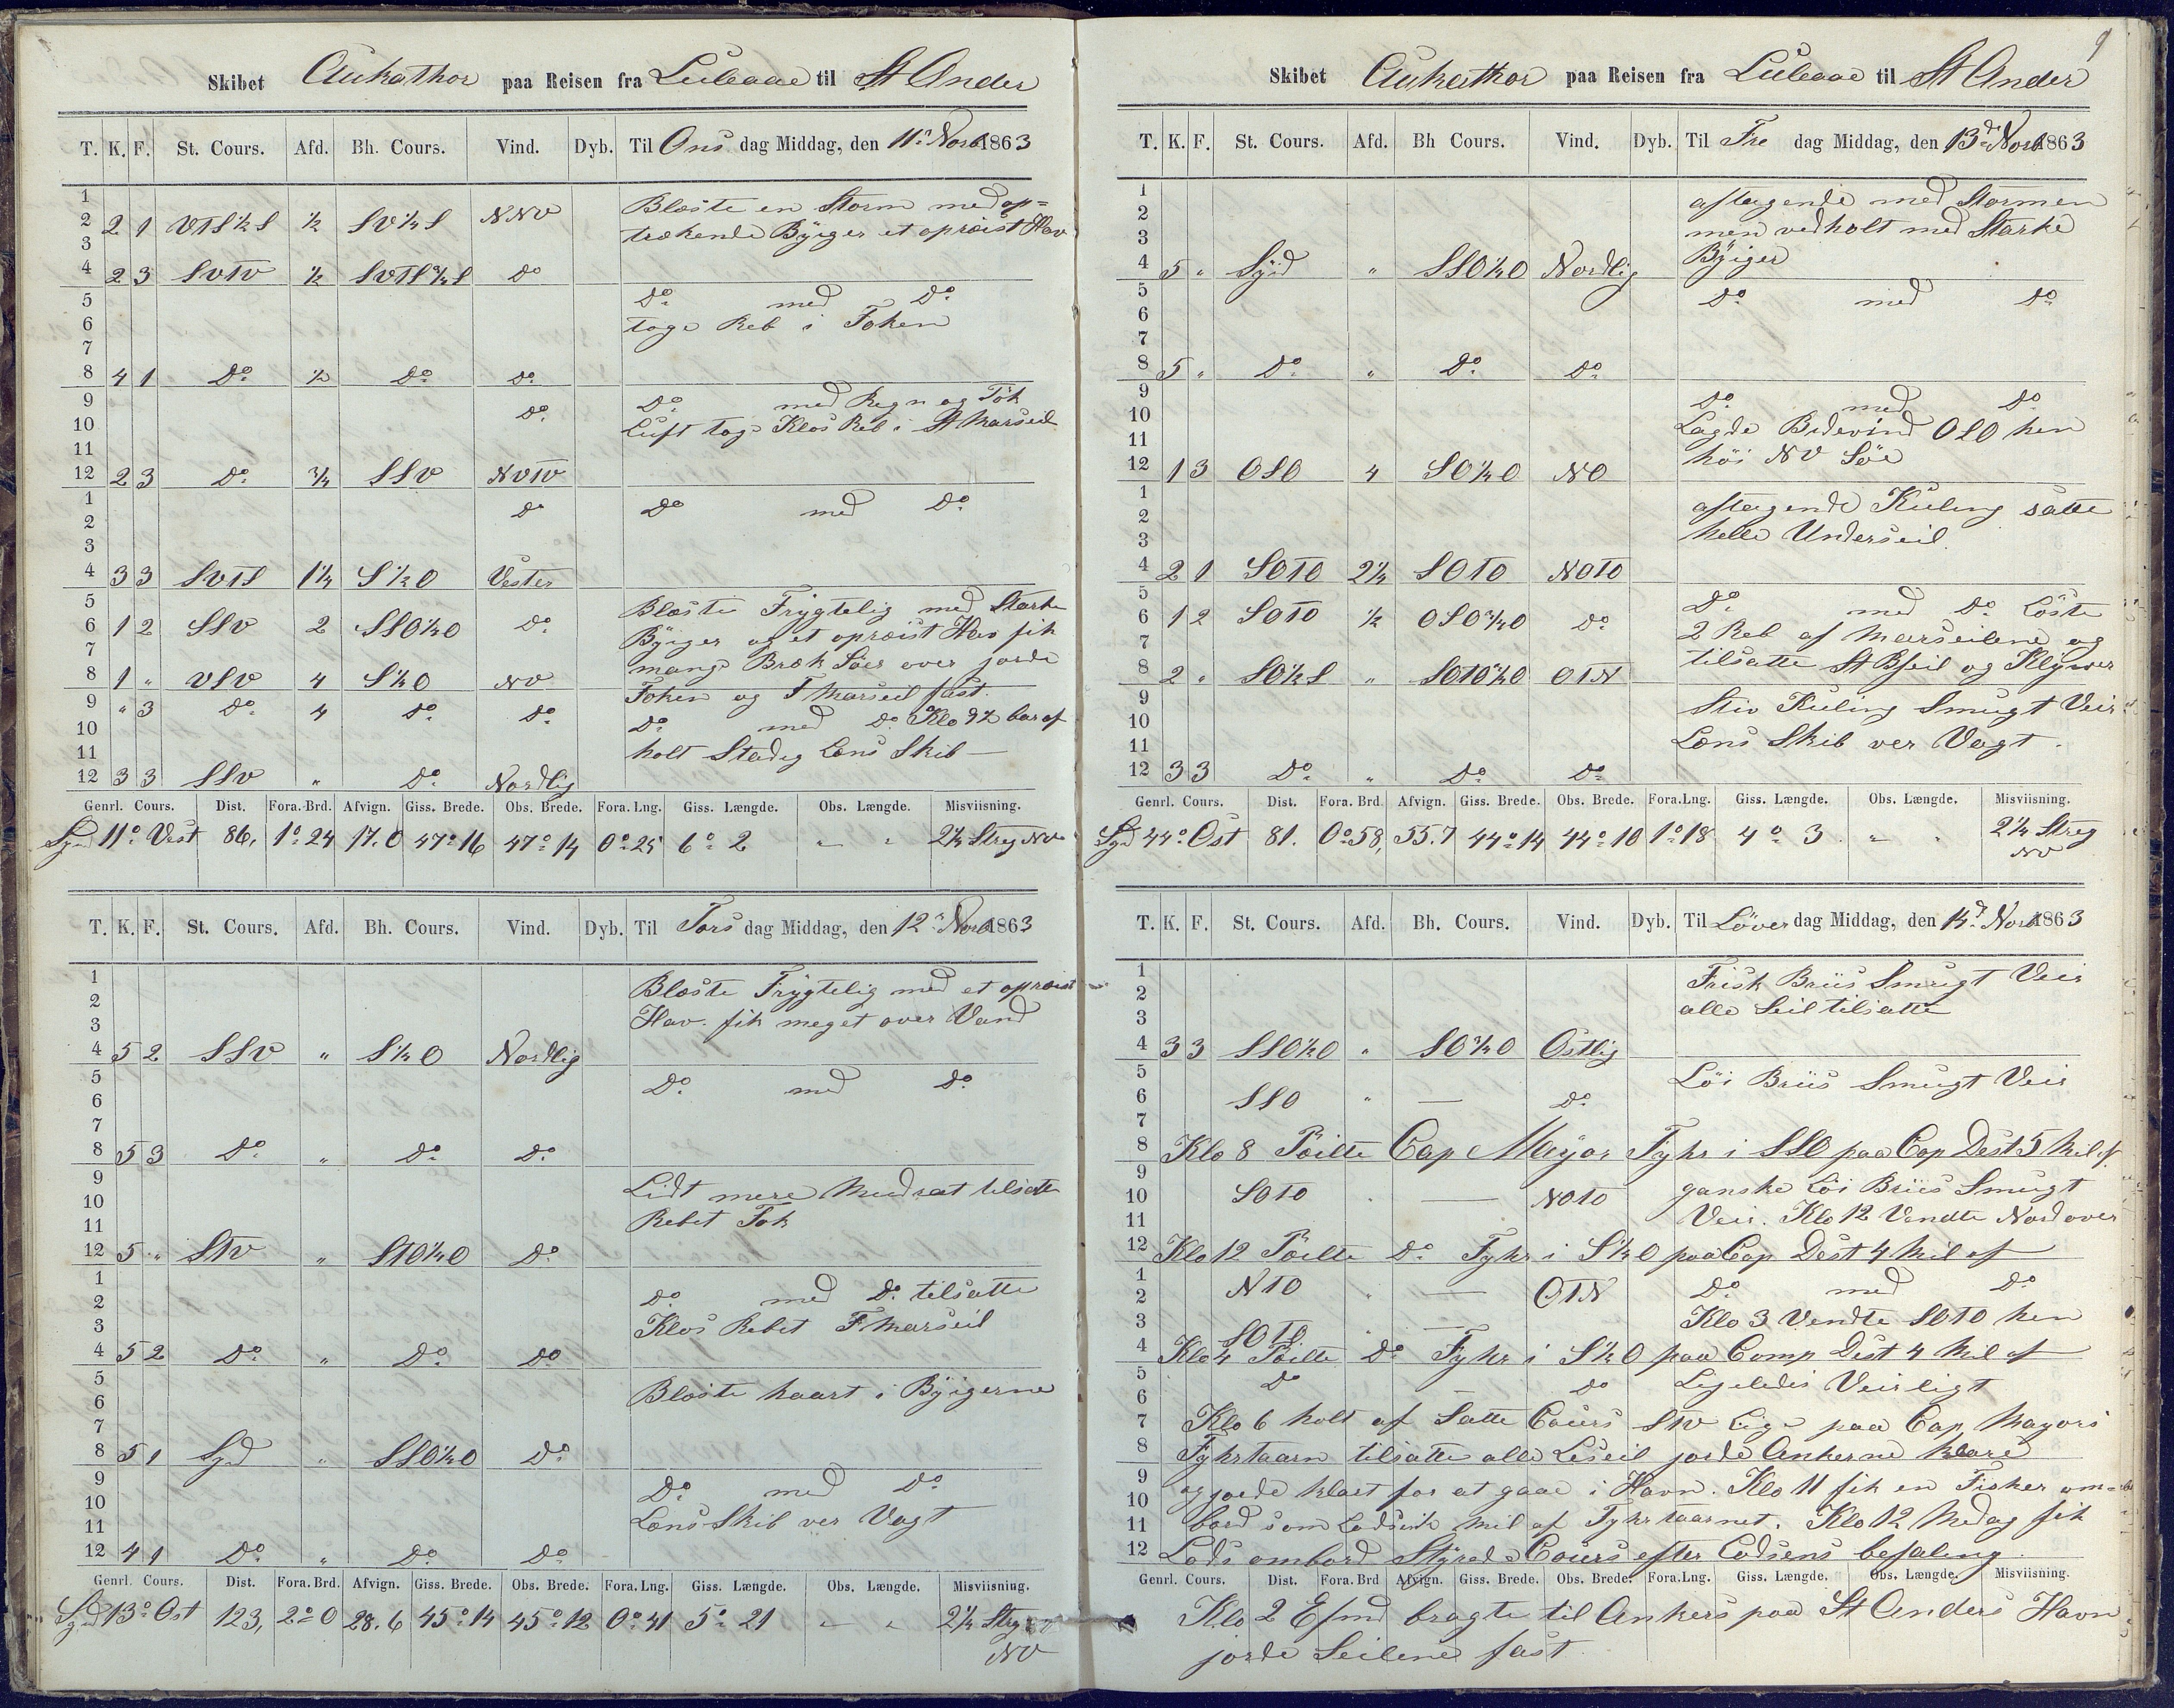 Skibet Aukathor paa Reisen fra Luleaae til St Ander
T. K. F. St. Cours. Afd. Bh. Cours. Vind. Dyb. Til Ons dag Middag, den 11te Novb 1863
1 Blæste en Storm med op=
2 2 1 VTS½S ½ SV½S NNV trækende Byiger et opreist Hav
3
4 2 3 SVTV ½ SVTS¾S Do
5 Do med Do
6 toge Reb i Foken
7
8 4 1 Do ½ Do Do
9 Do Do med Regn og Tök
10 Luft toge Klos Reb i St Marseil
11
12 2 3 Do ¾ SSV NVTV
1 Do Do med Do
2
3
4 3 3 SVTS 1¼ S½O Vester
5 Blæste Frygtelig med Starke
6 1 2 SSV 2 SSO¼O Do Byiger og et opreist Hav fik
7 mange Bræk Söer over jorde
8 1 " VSV 4 S¼O NV Foken og F Marseil fast.
9 " 3 Do 4 Do Do
10 Do med Do Klo 9½ bar af
11 holt Stadig Lens Skib
12 3 3 SSV " Do Nordlig
Genrl. Cours. Dist. Fora. Brd. Afvign. Giss. Brede. Obs. Brede. Fora. Lng. Giss. Længde. Obs. Længde. Misviisning.
Syd 11° Vest 86, 1° 24 17.0 47° 16 47° 14 0° 25 6° 2 " " 2¼ Streg NV
T. K. F. St. Cours. Afd. Bh. Cours. Vind. Dyb. Til Tors dag Middag, den 12te Novb 1863
1 Blæste Frygtelig med et opreist
2 Hav. fik meget over Vand
3
4 5 2 SSV " S¼O Nordlig
5 Do med Do
6
7
8 5 3 Do " Do Do
9 Lidt mere Modrat tilsatte
10 Rebet Fok
11
12 5 " STV " STO¼O Do
1 Do med Do tilsatte
2 Klos Rebet F Marseil
3
4 5 2 Do " Do Do
5 Blæste haart i Byigerne
6
7
8 5 1 Syd " SSO¼O Do
9 Do med Do
10 Lens Skib ver Vagt
11
12 4 1 Do " Do Do
Genrl. Cours. Dist. Fora. Brd. Afvign. Giss. Brede. Obs. Brede. Fora. Lng. Giss. Længde. Obs. Længde. Misviisning.
Syd 13° Ost 123, 2° 0 28.6 45° 14 45° 12 0° 41 5° 21 " " 2¼ Streg
NV
9
Skibet Aukathor paa Reisen fra Luleaae til St Ander
T. K. F. St. Cours. Afd. Bh Cours. Vind. Dyb. Til Fre dag Middag, den 13de Novb 1863
1 aftagende med Stormen
2 men vedholt med Starke
3 Byiger
4 5 " Syd " SSO¼O Nordlig
5 Do med Do
6
7
8 5 " Do " Do Do
9 Do med Do
10 Lagde Bidevind OSO hen
11 höi NV Söe
12 1 3 OSO 4 SO¼O NO
1 aftagende Kuling satte
2 helle Underseil
3
4 2 1 SOTO 2¼ SOTO NOTO
5 Do med Do Löste
6 1 2 SOTO ½ OSO¾O Do 2 Reb af Marseilene og
7 tilsatte St Bseil og Klywer
8 2 " SO½S " SOTO¾O OTN
9 Stiv Kuling Smugt Veir
10
11 Lens Skib ver Vagt.
12 3 3 Do " Do Do
Genrl. Cours. Dist. Fora. Brd Afvign. Giss. Brede. Obs. Brede. Fora. Lng. Giss. Længde. Obs. Længde. Misviisning.
Syd 44° Ost 81. 0° 58, 55.7 44° 14 44° 10 1° 18 4° 3 " " 2¼ Streg
NV
T. K. F. St. Cours. Afd. Bh. Cours. Vind. Dyb. Til Löver dag Middag, den 14de Novb 1863
1 Frisk Briis Smugt Veir
2 alle Seil tilsatte
3
4 3 3 SSO½O " SO¾O Ostlig
5 Löi Briis Smugt Veir
6 SSO " — Do
7
8 Klo 8 Pöilte Cap Mayor Fyhr i SSO paa Cop Dest 5 Mil af
9 ganske Löi Briis Smugt
10 SOTO " — NOTO Veir. Klo 12 Vendte Nordover
11
12 Klo 12 Pöilte Do Fyhr i S¼O paa Cop Dest 4 Mil af
1 NTO " — OTN Do med Do
2 Klo 3 Vendte SOTO hen
3 SOTO —
4 Klo 4 Pöilte Do Fyhr i S½O paa Comp Dist 4 Mil af
5 Do — Do Ligeledes Veirligt
6
7 Klo 6 holt af Satte Cours STV Lige paa Cap Mayors
8 Fyhrtaarn tilsatte alle Leseil jorde Ankerne klare
9 og jorde klart for at gaae i Havn. Klo 11 fik en Fisker om=
10
11 bord som Lods Mil af Fyhrtaarnet. Klo 12 Medag fik
12 Lods ombord Styrede Cours efter Lodsens befaling
Genrl. Cours. Dist. Fora. Brd Afvign. Giss. Brede. Obs. Brede. Fora. Lng. Giss. Længde. Obs. Længde. Misviisning.
Klo 2 Efmd bragte til Ankers paa St Anders Havn
jorde Seilene fast